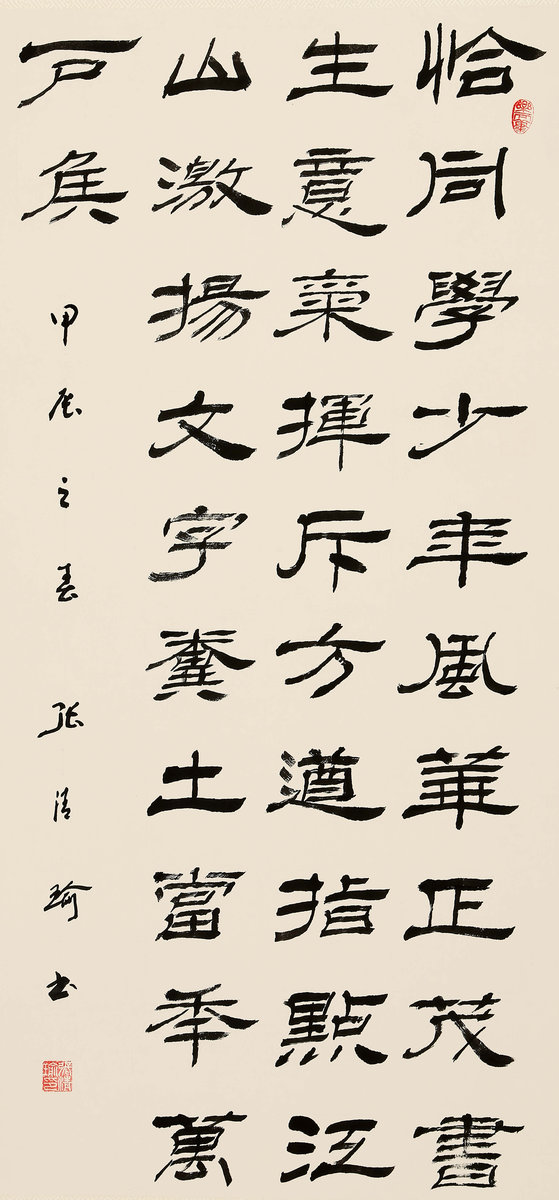 恰同學少年風華正茂書
生意氣揮斥方遒指點江
山激揚文字糞土當年萬
户矦
甲辰之春 張清瑜书